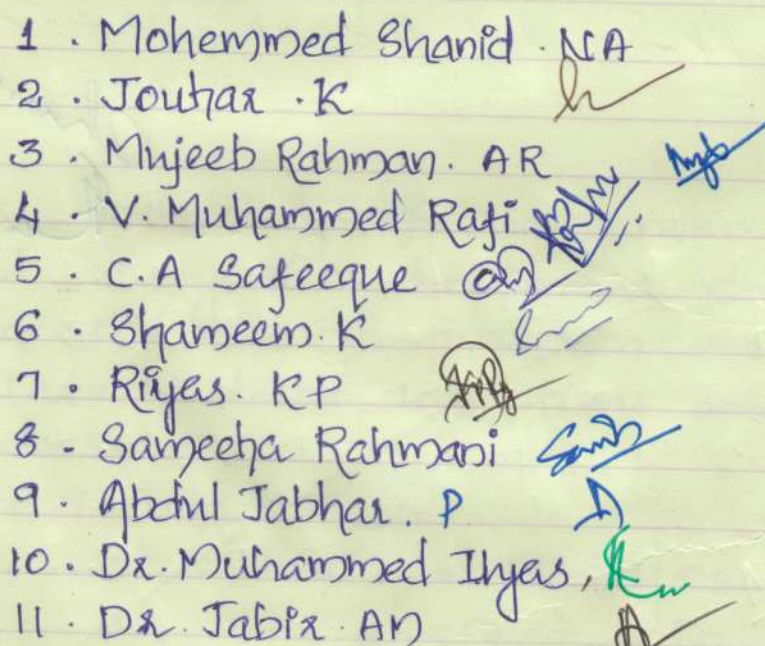 1. Mohemmed Shanid. NA
2. Jouhar. K
3. Mujeeb Rahman. AR
4. V. Muhammed Rafi
5. C.A Safeeque
6. Shameem. K
7. Riyas. KP
8. Sameeha Rahmani
9. Abdul Jabhar. P
10. Dr. Muhammed Ilyas,
11. Dr. Jabir. AM